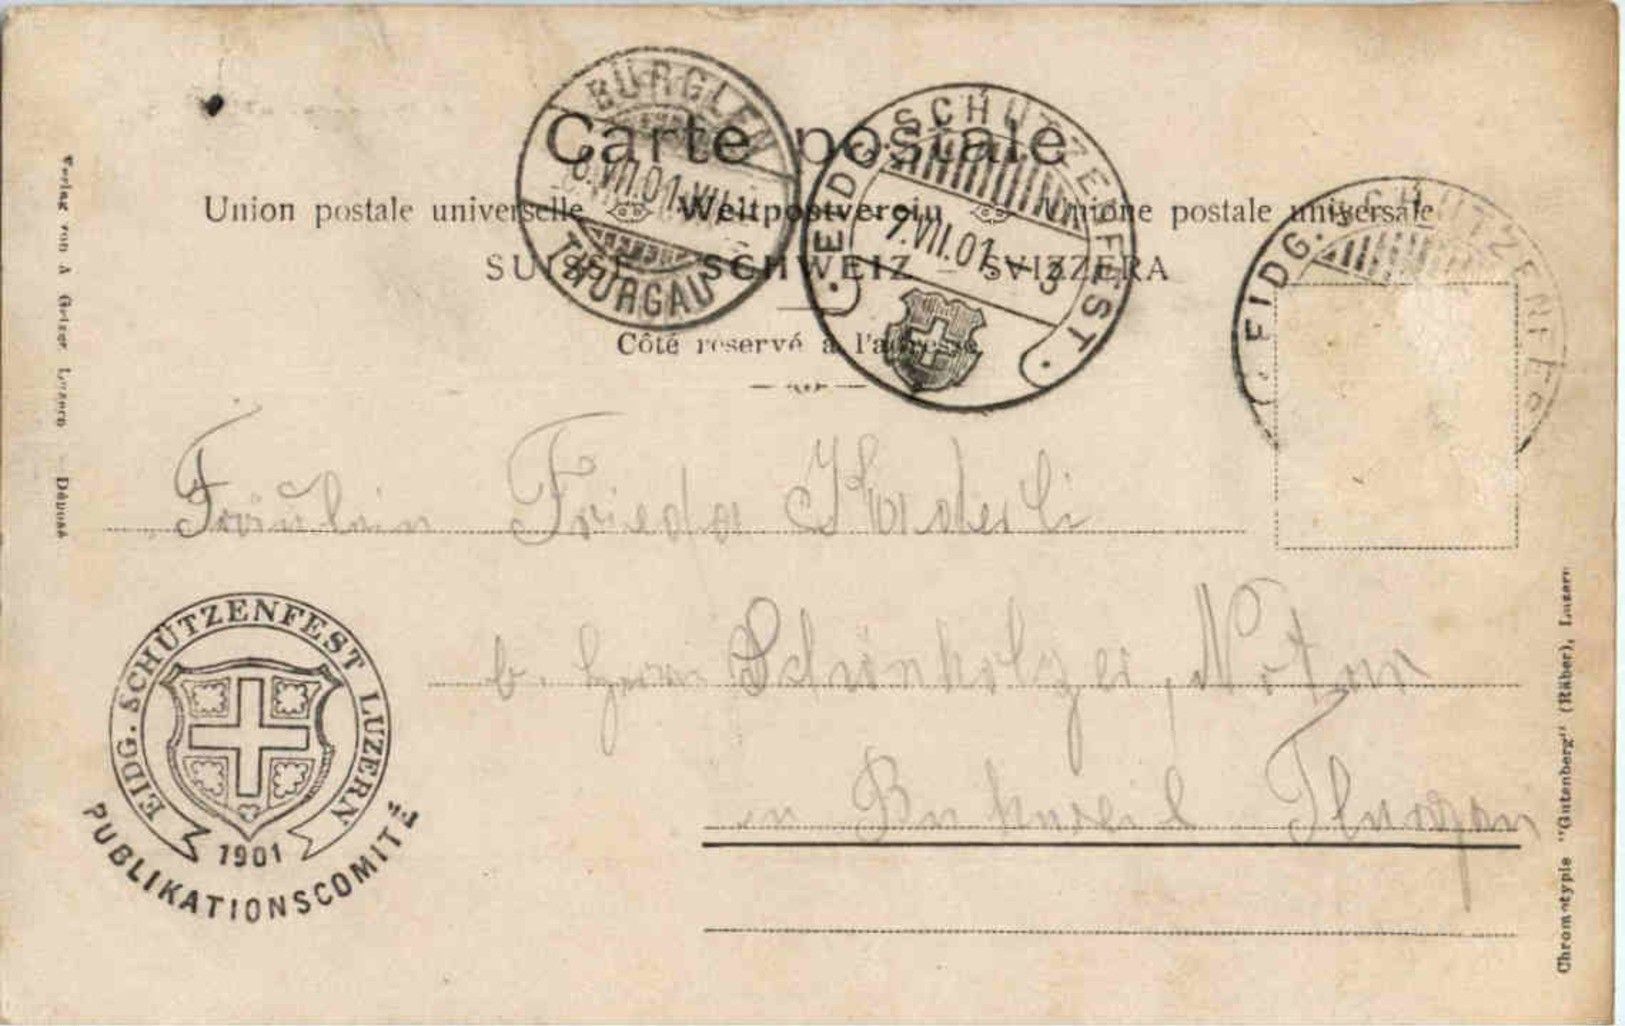 BÜRGLEN
8.VII.01.VII
THURGAU
EIDG. SCHÜTZENFEST
7.VII.01.–3
EIDG. SCHÜTZENFES
Carte postale
Union postale universelle Weltpostverein Unione postale universale
SUISSE – SCHWEIZ – SVIZZERA
Côté réservé à l'adresse
Fräulein Frieda Haderli
b. Herrn Schönholzer, Notar
in Thurgau
EIDG. SCHÜTZENFEST LUZERN
1901
PUBLIKATIONSCOMITÉ
Verlag von Luzern – Déposé
Chromotypie "Gutenberg" (Räber), Luzern